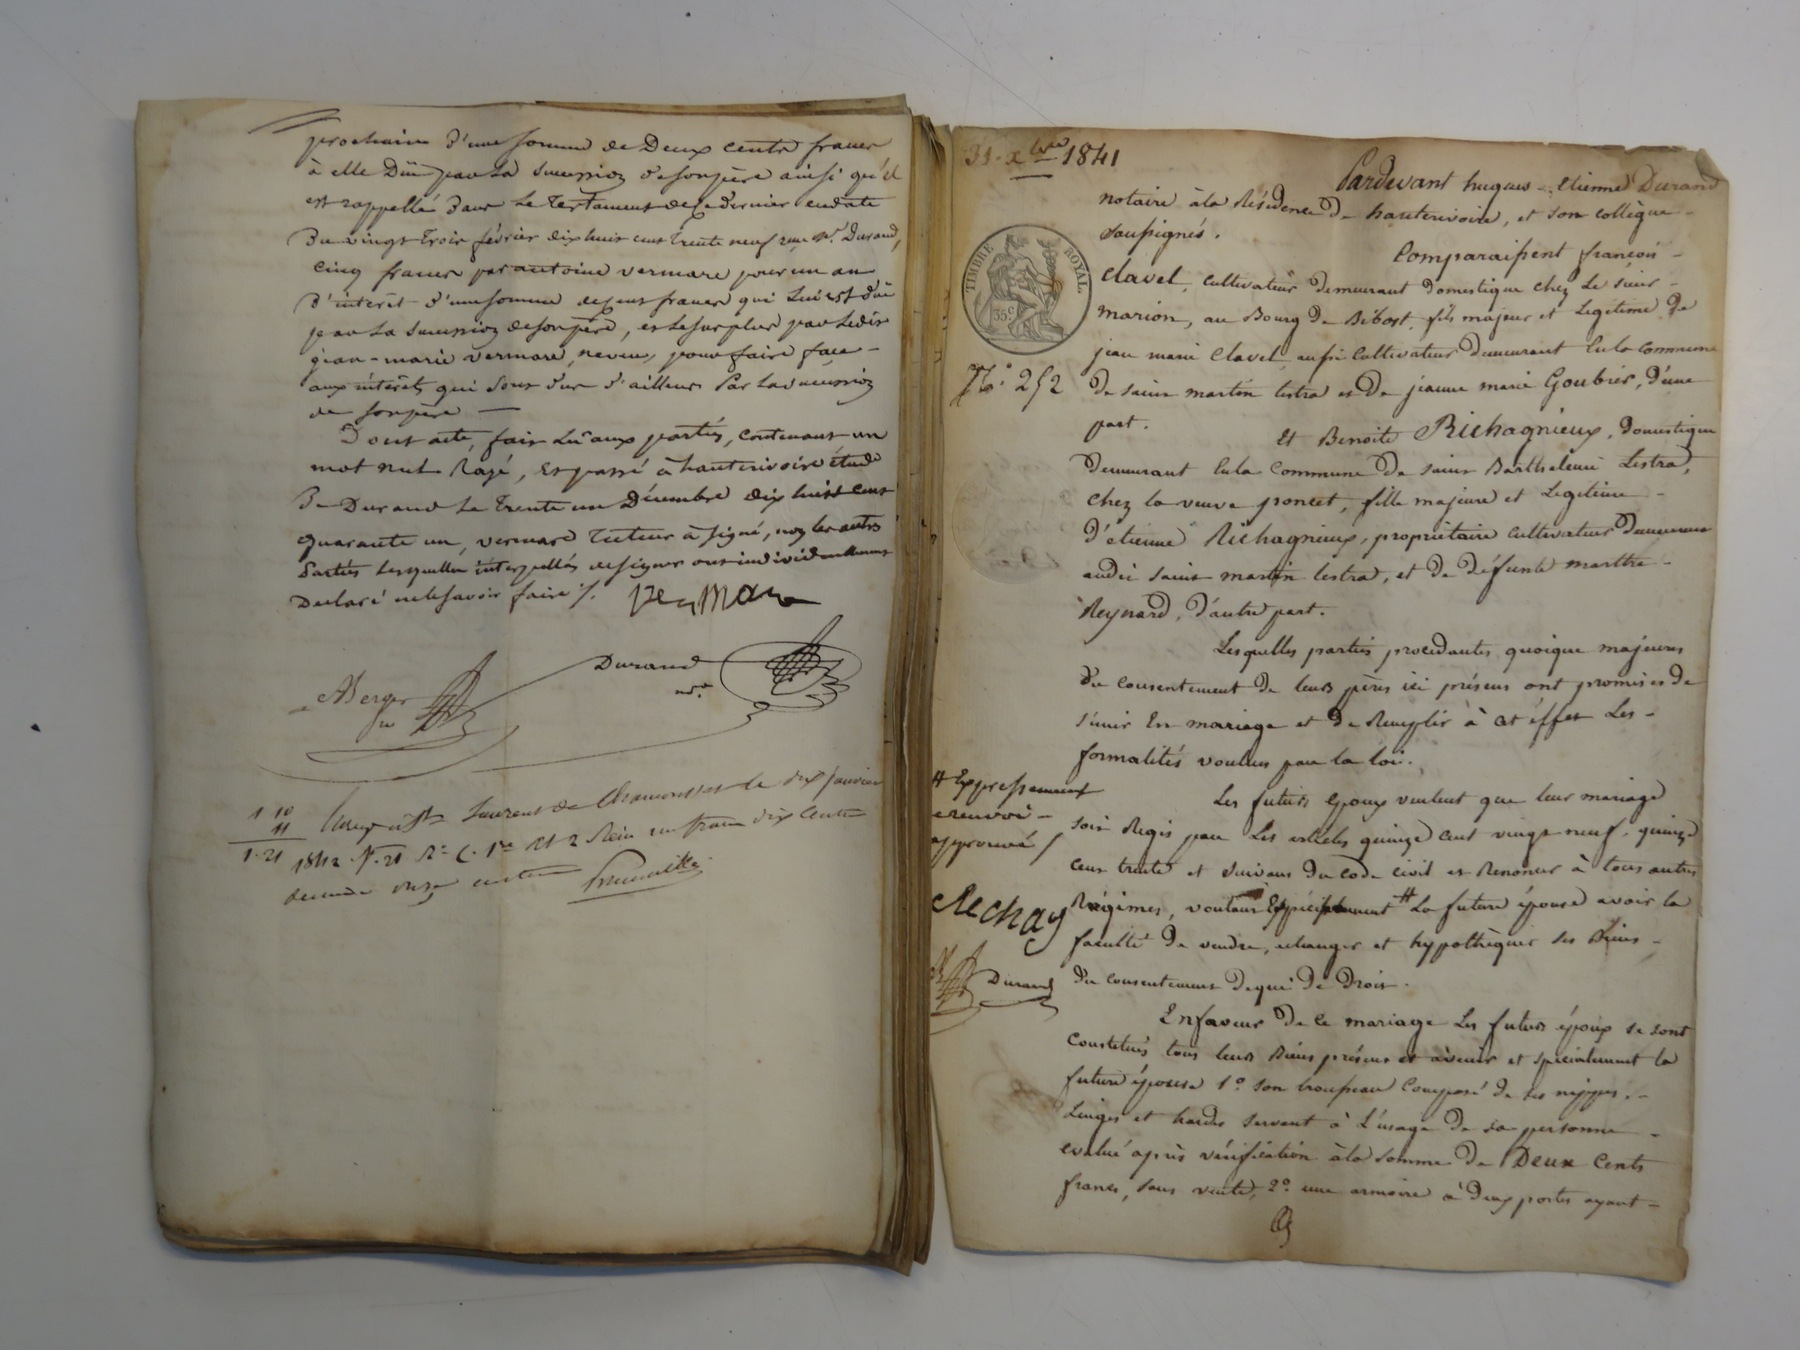 prochain d'une somme de Deux cents francs
à elle Düe par la succession de son père ainsi qu'il
est rappellé dans le Testament de ce dernier en date
Du vingt trois février dix huit cent trente neuf reçu Me Durand,
cinq francs par antoine vermare pour un an
d'intérêt d'une somme de cent francs qui lui est düe
par la succession de son père, et le surplus par ledit
jean-marie vermare, neveu, pour faire face
aux intérêts qui sont dus d'ailleurs par la succession
de son père —
Dont acte, fait lu aux parties, contenant un
mot nul Rayé, et passé à hauterivoire étude
De Durand le trente un Décembre dix huit cent
quarante un, vermare Tuteur à signé, non les autres
Parties lesquelles interpellées de signer ont individuellement
Déclaré ne le savoir faire /.
Vermare
Durand
nre
Berger
1 10
11
1.21
Enregistré à St Laurent de Chamousset le dix janvier
1842 No. 21 Ro C. 1re et 2 Reçu un franc dix centimes
décime onze centimes
31. Xbre 1841
Pardevant hugues-Etienne Durand
notaire à la Résidence De hauterivoire, et son collègue
soussignés.
Comparaissent françois
Clavel, cultivateur demeurant domestique chez le sieur
marion, au Bourg de Bibost, fils majeur et legitime de
jean marie Clavel, aussi cultivateur demeurant en la commune
TIMBRE ROYAL
35 c
No. 252
de saint martin lestra et de jeanne marie Goubier, d'une
part.
Et Benoite Richagnieux, domestique
demeurant en la commune de saint Barthelemi Lestra,
chez la veuve poncet, fille majeure et legitime
d'étienne Richagnieux, propriétaire cultivateur demeurant
audit saint martin lestra, et de défunte marthe
Reynard, d'autre part.
Lesquelles parties procédantes quoique majeures
du consentement de leurs pères ici présens ont promis de
s'unir En mariage et de Remplir à cet effet les
formalités voulues par la loi.
Les futurs époux veulent que leur mariage
soit Régis par les articles quinze cent vingt neuf, quinze
cent trente et suivans du code civil et Renoncer à tous autres
Régimes, voulant # la future épouse avoir la
faculté de vendre, echanger et hypothèquer ses Biens
du consentement de qui de Droit.
# Expressement
renvoi
approuvé /
Rechag
Durand
En faveur de ce mariage les futurs époux se sont
Constitués tous leurs Biens présens et avenir et spécialement la
future épouse 1o son trousseau composé de ses nippes,
linges et hardes servant à l'usage de sa personne
evalué après vérification à la somme de Deux Cents
francs, sans vente, 2o une armoire à deux portes ayant